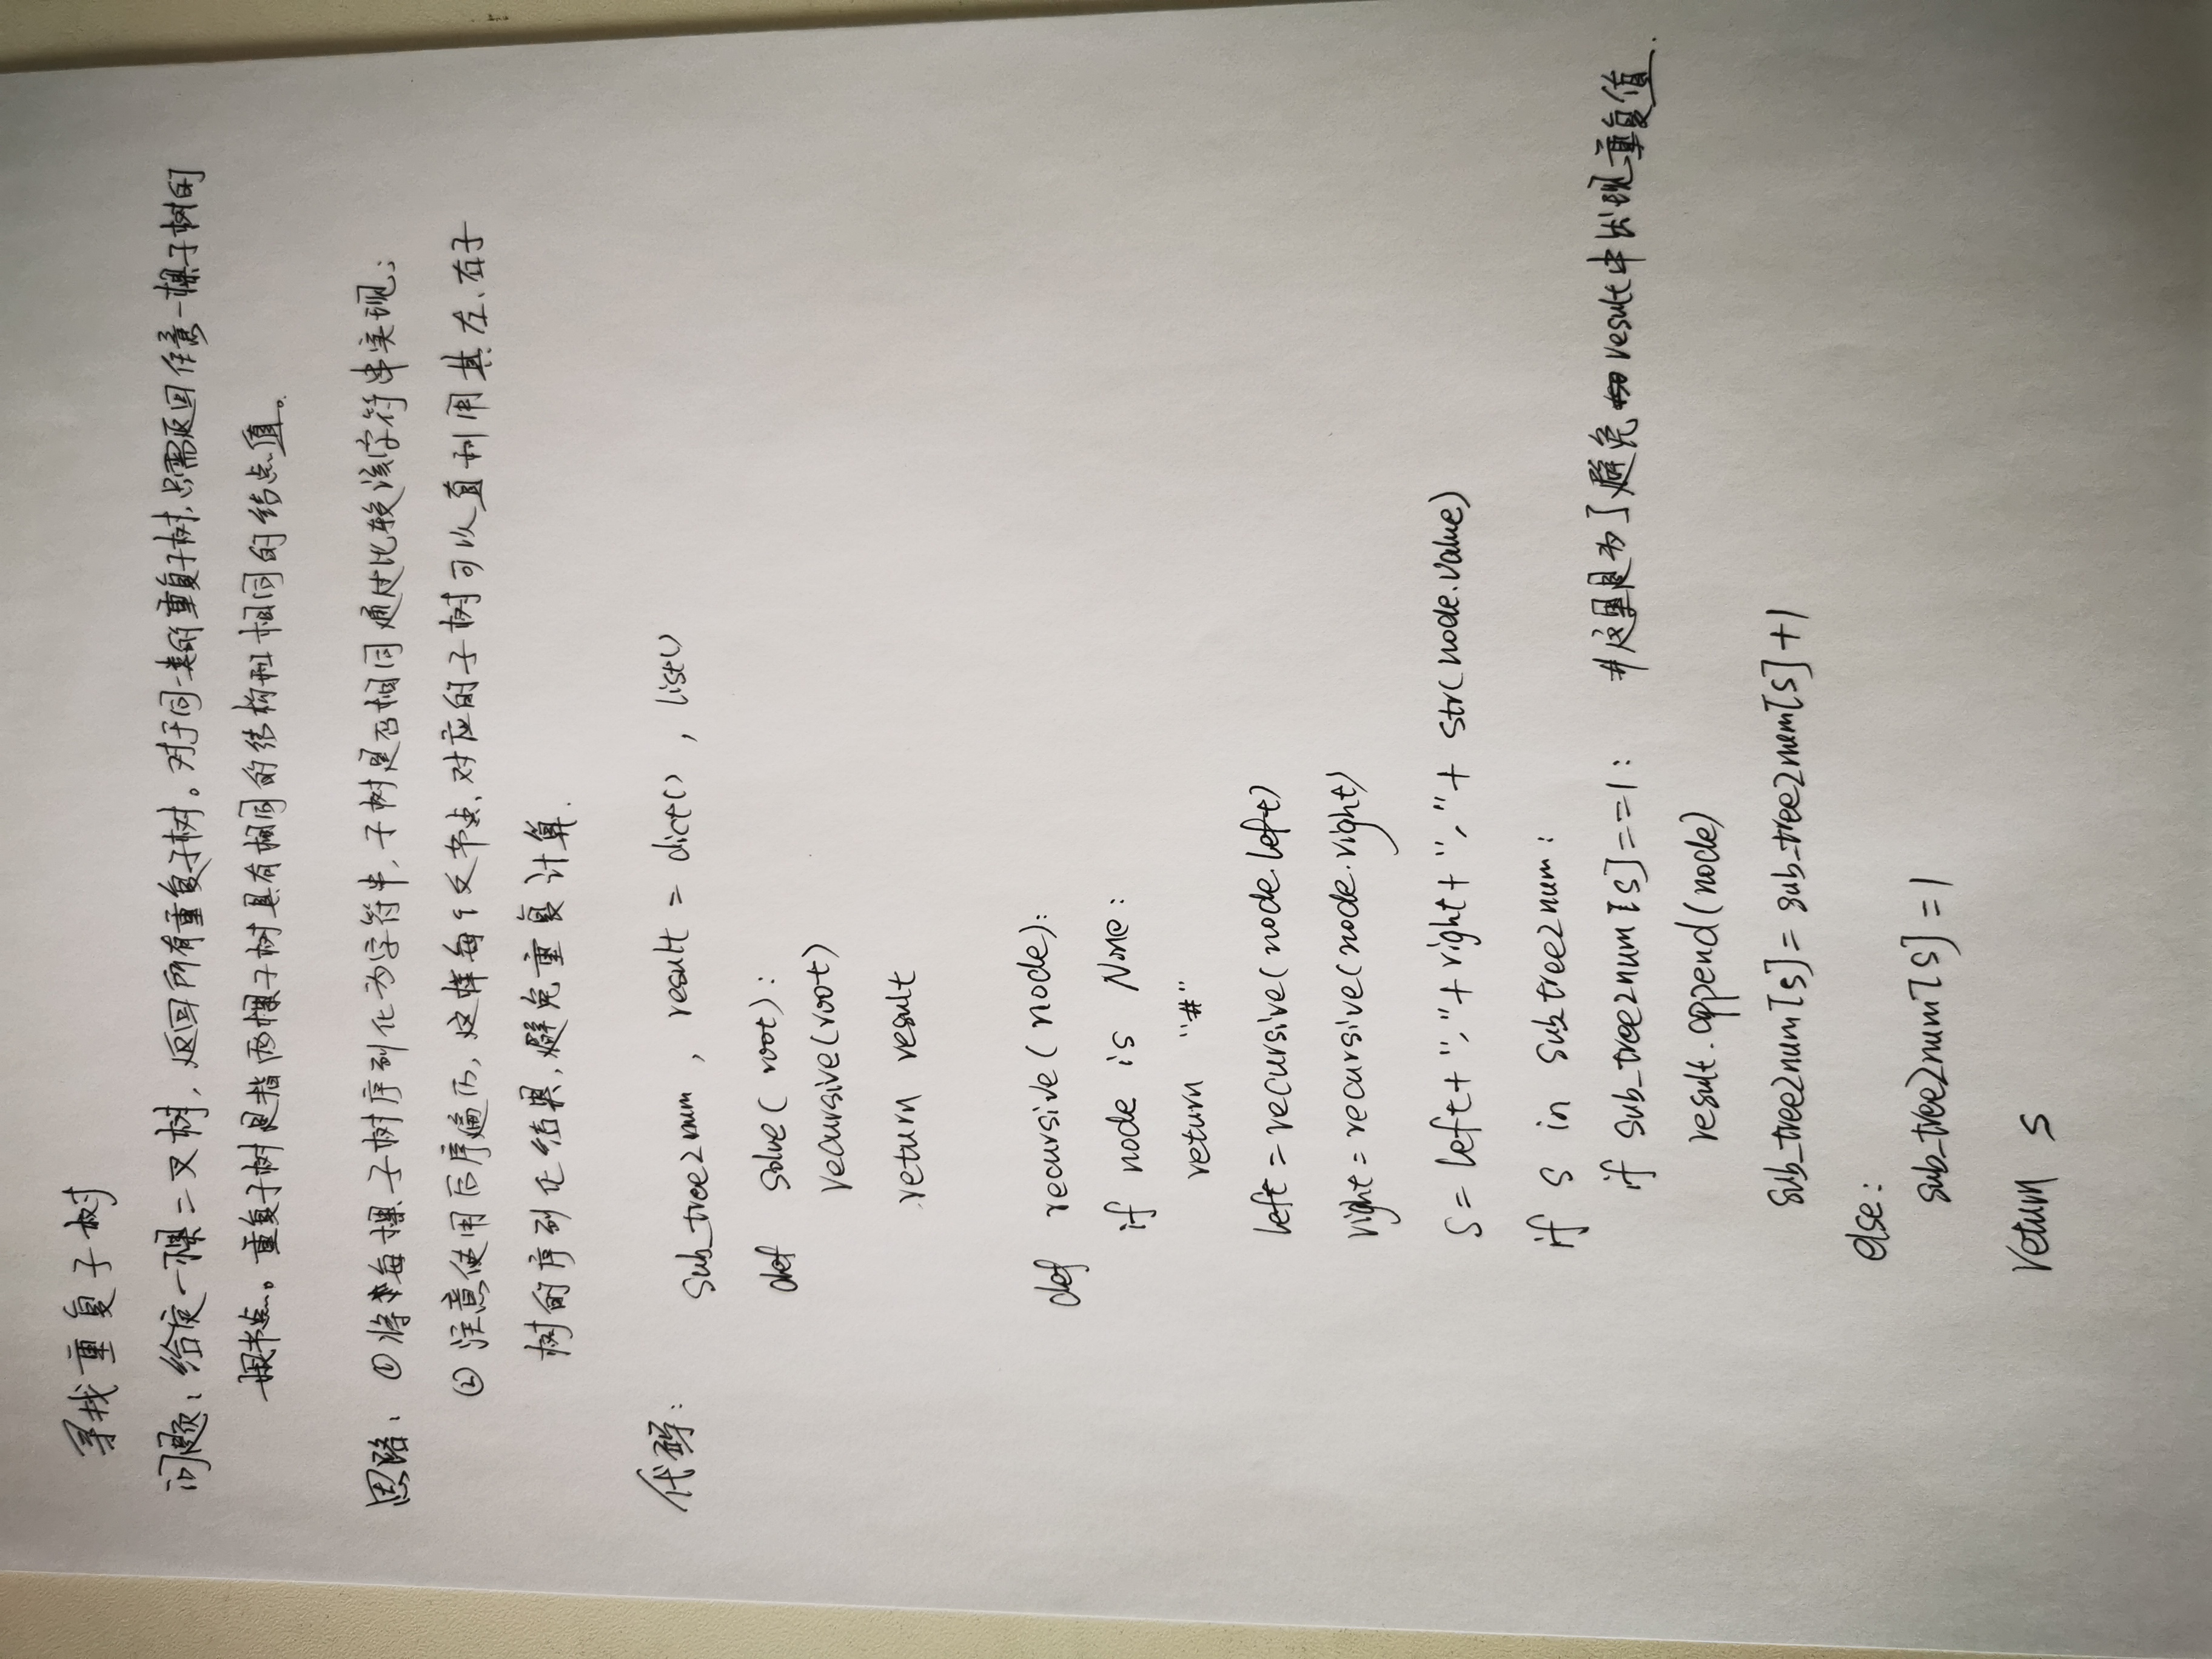 寻找重复子树
问题：给定一棵二叉树，返回所有重复子树。对于同一类的重复子树，只需返回任意一棵子树的
根节点。重复子树是指两棵子树具有相同的结构和相同的结点值。
思路：①将每棵子树序列化为字符串，子树是否相同通过比较该字符串实现；
②注意使用后序遍历，这样每个父节点对应的子树可以直利用其左、右子
树的序列化结果，避免重复计算.
代码：
sub_tree2num , result = dict() , list()
def solve( root):
recursive(root)
return result
def recursive( node):
if node is None:
return "#"
left = recursive(node.left)
right = recursive(node.right)
s = left + "," + right + "," + str(node.value)
if s in sub_tree2num:
if sub_tree2num[s]==1: #这里是为了避免result中出现重复值.
result.append(node)
sub_tree2num[s] = sub_tree2num[s] +1
else:
sub_tree2num[s] = 1
return s